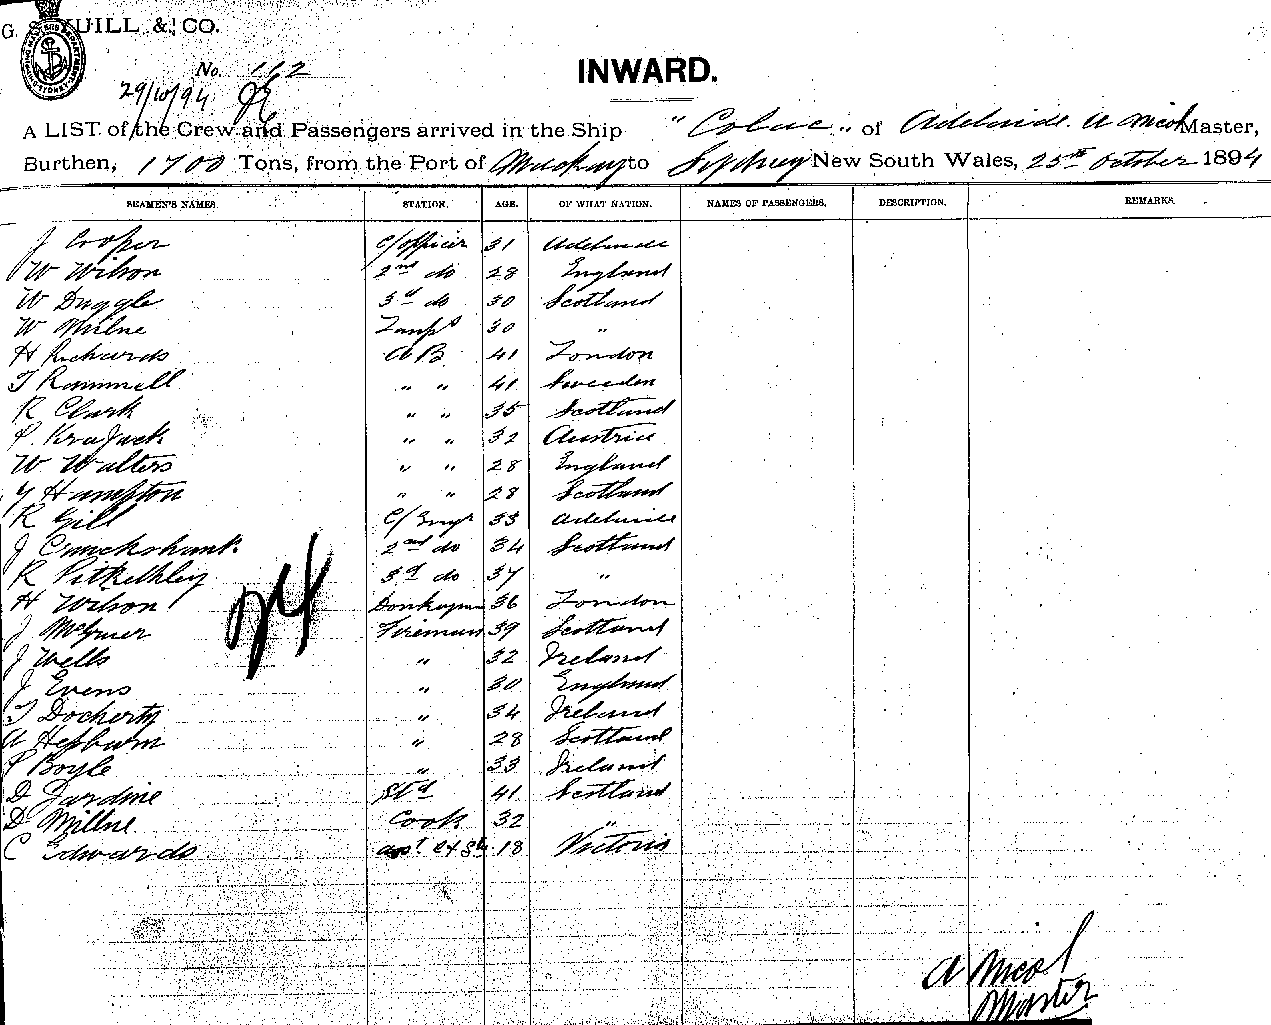 G. S. YUILL & CO.
No. 112
29/10/94
INWARD.
A LIST of the Crew and Passengers arrived in the Ship "Colac" of Adelaide. A Nicol Master,
Burthen, 1700 Tons, from the Port of Mackay to Sydney New South Wales, 25th October 1894
SEAMEN'S NAMES. STATION. AGE. OF WHAT NATION. NAMES OF PASSENGERS. DESCRIPTION. REMARKS.
J Cooper c/officer 31 Adelaide
W Wilson 2nd do 28 England
W Duggle 3d do 30 Scotland
W Milne Lamps 30 "
H Richards AB 41 London
T Rammell " " 41 Sweeden
R Clark " " 35 Scotland
P. KraJack " " 32 Austria
W Walters " " 28 England
Y Hampton " " 28 Scotland
R Gill C/Engr 33 Adelaide
J Cruickshank. 2nd do 34 Scotland
R Pitkethley 3d do 37 "
H Wilson Donkeyman 36 London
J Fireman 39 Scotland
J Wells " 32 Ireland
J Evens " 30 England
T Docherty " 34 Ireland
A Hepburn " 28 Scotland
P Boyle " 33 Ireland
D Jardine Std 41 Scotland
D Millne Cook 32 "
C Edwards 18 Victoria
24
A Nicol
Master